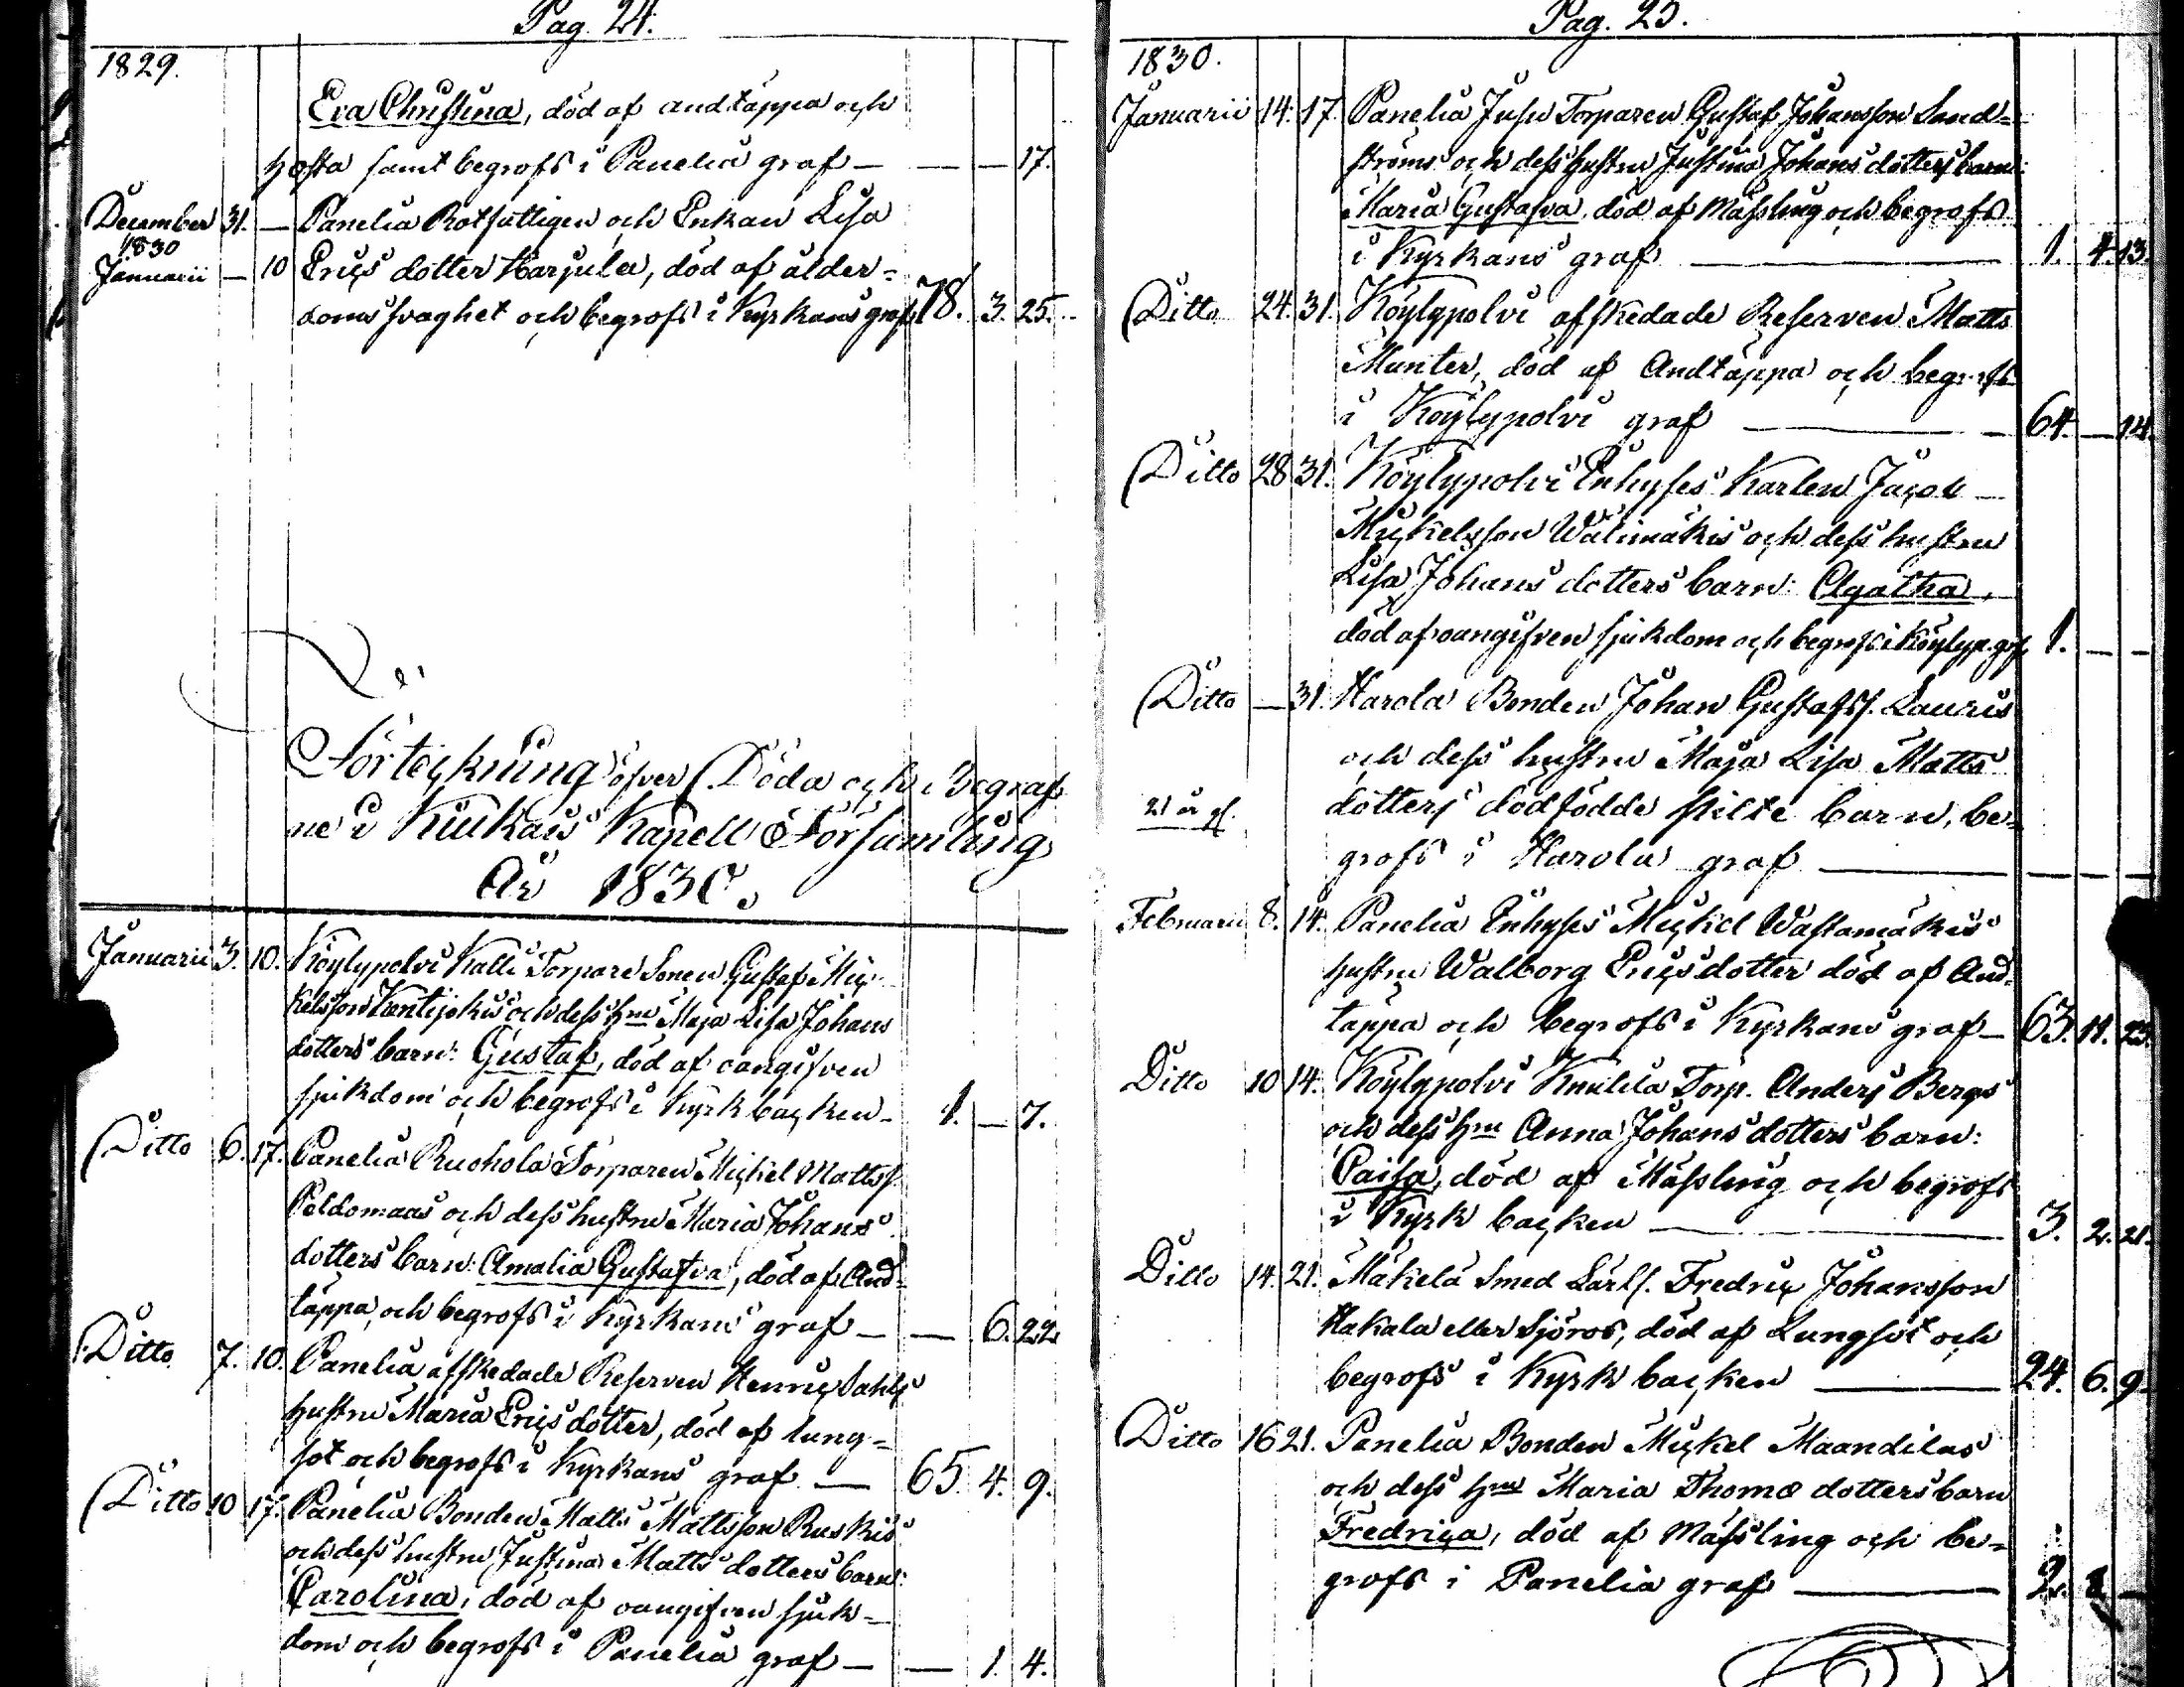 Pag. 24.
1829.
Eva Christina, död af andtäppa och
hosta samt begrofs i Panelia graf — — — 17.
December 31. — Panelia Rotfattigen och Enkan Lisa
1830
Januarii — 10 Erics dotter Harjula, död af ålder=
doms svaghet och begrofs i Kyrkans graf 78. 3. 25.
Förteckning öfver Döda och Begraf
ne i Kiukais Kapell Församling
År 1830.
Januarii 3. 10. Köylypolvi Kalli Torpare Sonen Gustaf Mic
kelsson Kentijokis och dess hru Maja Lisa Johans
dotters barn: Gustaf, död af oangifven
sjukdom och begrofs i Kyrkbacken — 1. — 7.
Ditto 6. 17. Panelia Ruohola Torparen Mickel Mattss.
Peldomaas och dess hustru Maria Johans
dotters barn: Amalia Gustafva, död af And=
täppa, och begrofs i Kyrkans graf — — 6. 22
Ditto 7. 10. Panelia afskedade Reserven Henric Sahls
hustru Maria Erics dotter, död af lung=
sot och begrofs i Kyrkans graf — 65. 4. 9.
Ditto 10 17. Panelia Bonden Matts Mattsson Ruskis
och dess hustru Justina Matts dotters barn:
Carolina, död af oangifven sjuk=
dom och begrofs i Panelia graf — — 1. 4.
Pag. 25.
1830.
Januarii 14. 17. Panelia Jusu Torparen Gustaf Johansson Sand=
ströms och dess hustru Justina Johans dotters barn:
Maria Gustafva, död af Mässling och begrofs
i Kyrkans graf — 1. 4. 13.
Ditto 24. 31. Köylypolvi afskedade Reserven Matts
Munter, död af Andtäppa och begrofs
i Köylypolvi graf — 64. — 14.
Ditto 28 31. Köylypolvi Inhyses Karlen Jacob —
Mickelsson Wälimäkis och dess hustru
Lisa Johans dotters barn: Agatha,
död af oangifven sjukdom och begrofs i Köylyp. graf 1. — —
Ditto — 31. Harola Bonden Johan Gustafss. Lauris
och dess hustru Maja Lisa Matts
dotters dödfödde flilte barn, be=
21 år gl.
grofs i Harola graf — — —
Februarii 8. 14. Panelia Inhyses Mickel Wastamäkis
hustru Walborg Erics dotter död af And=
täppa och begrofs i Kyrkans graf — 63. 11. 23.
Ditto 10 14. Köylypolvi Knuttila Torp. Anders Bergs
och dess hru Anna Johans dotters barn:
Caisa, död af Mässling och begrofs
i Kyrk backen — 3. 2. 21.
Ditto 14. 21. Mäkelä Smed Lärl. Fredric Johansson
Hakala eller Sjöros, död af Lungsot och
begrofs i Kyrk backen — 24. 6. 9.
Ditto 16 21. Panelia Bonden Mickel Maandilas
och dess hru Maria Thomæ dotters barn
Fredrica, död af Mässling och be=
grofs i Panelia graf — 2. 2 —